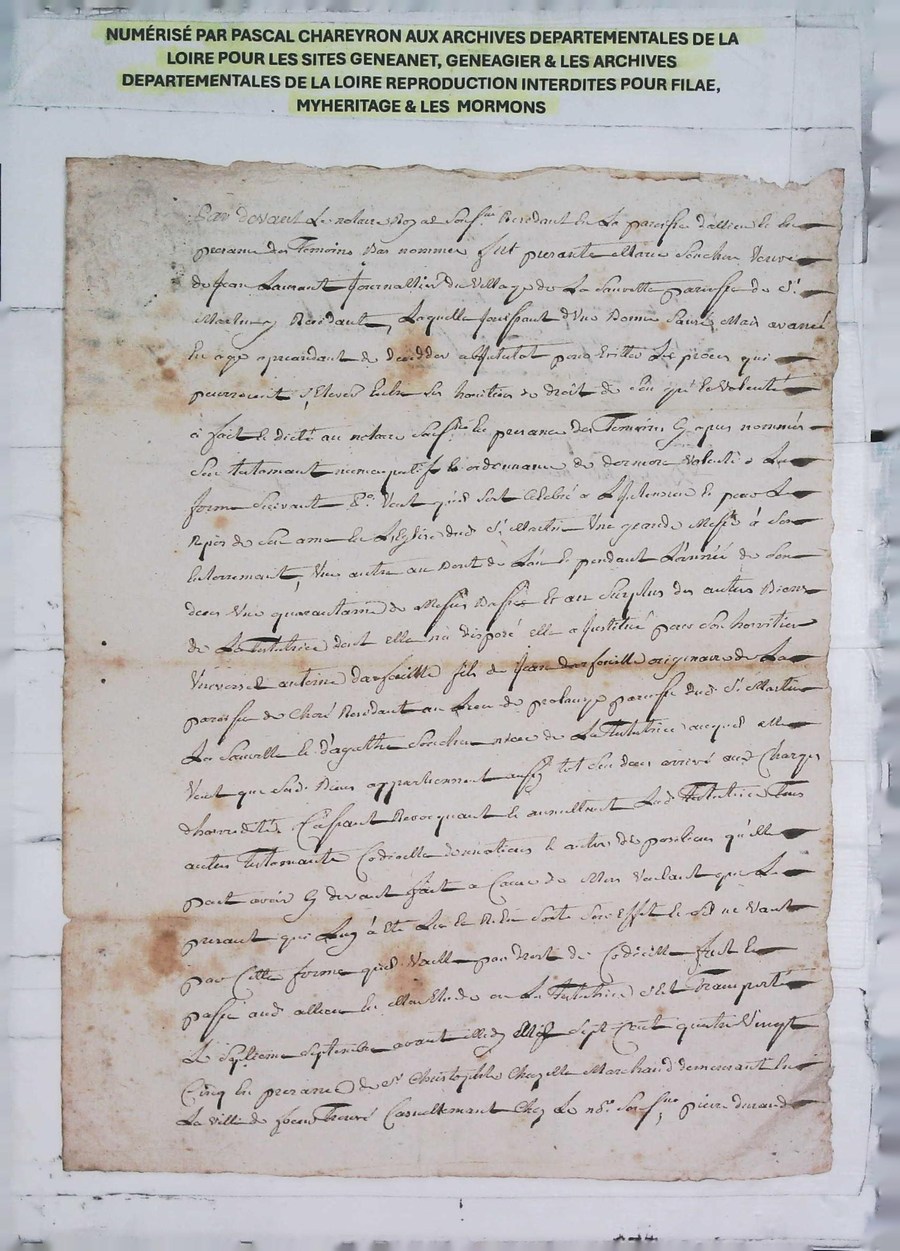 NUMÉRISÉ PAR PASCAL CHAREYRON AUX ARCHIVES DEPARTEMENTALES DE LA
LOIRE POUR LES SITES GENEANET, GENEAGIER & LES ARCHIVES
DEPARTEMENTALES DE LA LOIRE REPRODUCTION INTERDITES POUR FILAE,
MYHERITAGE & LES MORMONS
Par devant Le notaire Royal Sousne Residant En La paroisse d'allieu Et En
presance des Temoins Bas nommes fut presante Marie Souchon Veuve
de Jean Laurant Journallier du Village de La Sauvette paroisse de St
Martin y Residante, Laquelle Jouissant d'Une Bonne Santé Mais avancé
En age apreandant de deceder abJntestat pour Eviter Les proces qui
pourroient s'Elever Entre Ses heritiers de droit de Son gré Et Volonté
à fait Et dicté au notaire Sousne En presance des Temoins Cy apres nommés
Son testamant noncupatif Et ordonnance de derniere Volonté a La
forme Suivant Veut qu'il Soit Celebré a L'Jntension Et pour Le
Repos de Son ame En L'Eglise dud St Martin Une grande Messe à Son
Enterremant, Une autre au Bout de L'an Et pendant L'année de Son
deces Une quarantaine de Messes Basses Et au Surplus des autres Biens
de La Testatrice dont elle n'a disposé elle a Jnstitué pour Son heritier
Universel antoine darfeuille fils de Jean darfeuille originaire de La
paroisse de Residant au Lieu de paroisse dud St Martin
La Sauvetté Et d'agathe Souchon niece de La Testatrice auquel elle
Veut que Sesd Biens appartiennent aussy tot Son deces arrivé aux Charges
d'heredité Cassant Revocquant Et annullant Lad Testatrice Tous
autres Testamants Codicille donnations Et autres dispositions qu'elle
peut avoir Cy devant fait a Cause de Mort Voulant que Le
presant qui Luy à été Lu Et Relu Sorte Son Effet Et S'il ne Vaut
par Cette forme qu'il Vaille par droit de Codicille fait Et
passé aud allieu En L'Etude ou La Testatrice s'Est Transporté
Le Septieme Septembre avant Midy Mil Sept Cent quatre Vingt
Cinq En presance de Sr Christophle Chapelle Marchand demeurant En
La Ville de Trouvé Casuellemant Chez Le nore Sousne, pierre durand